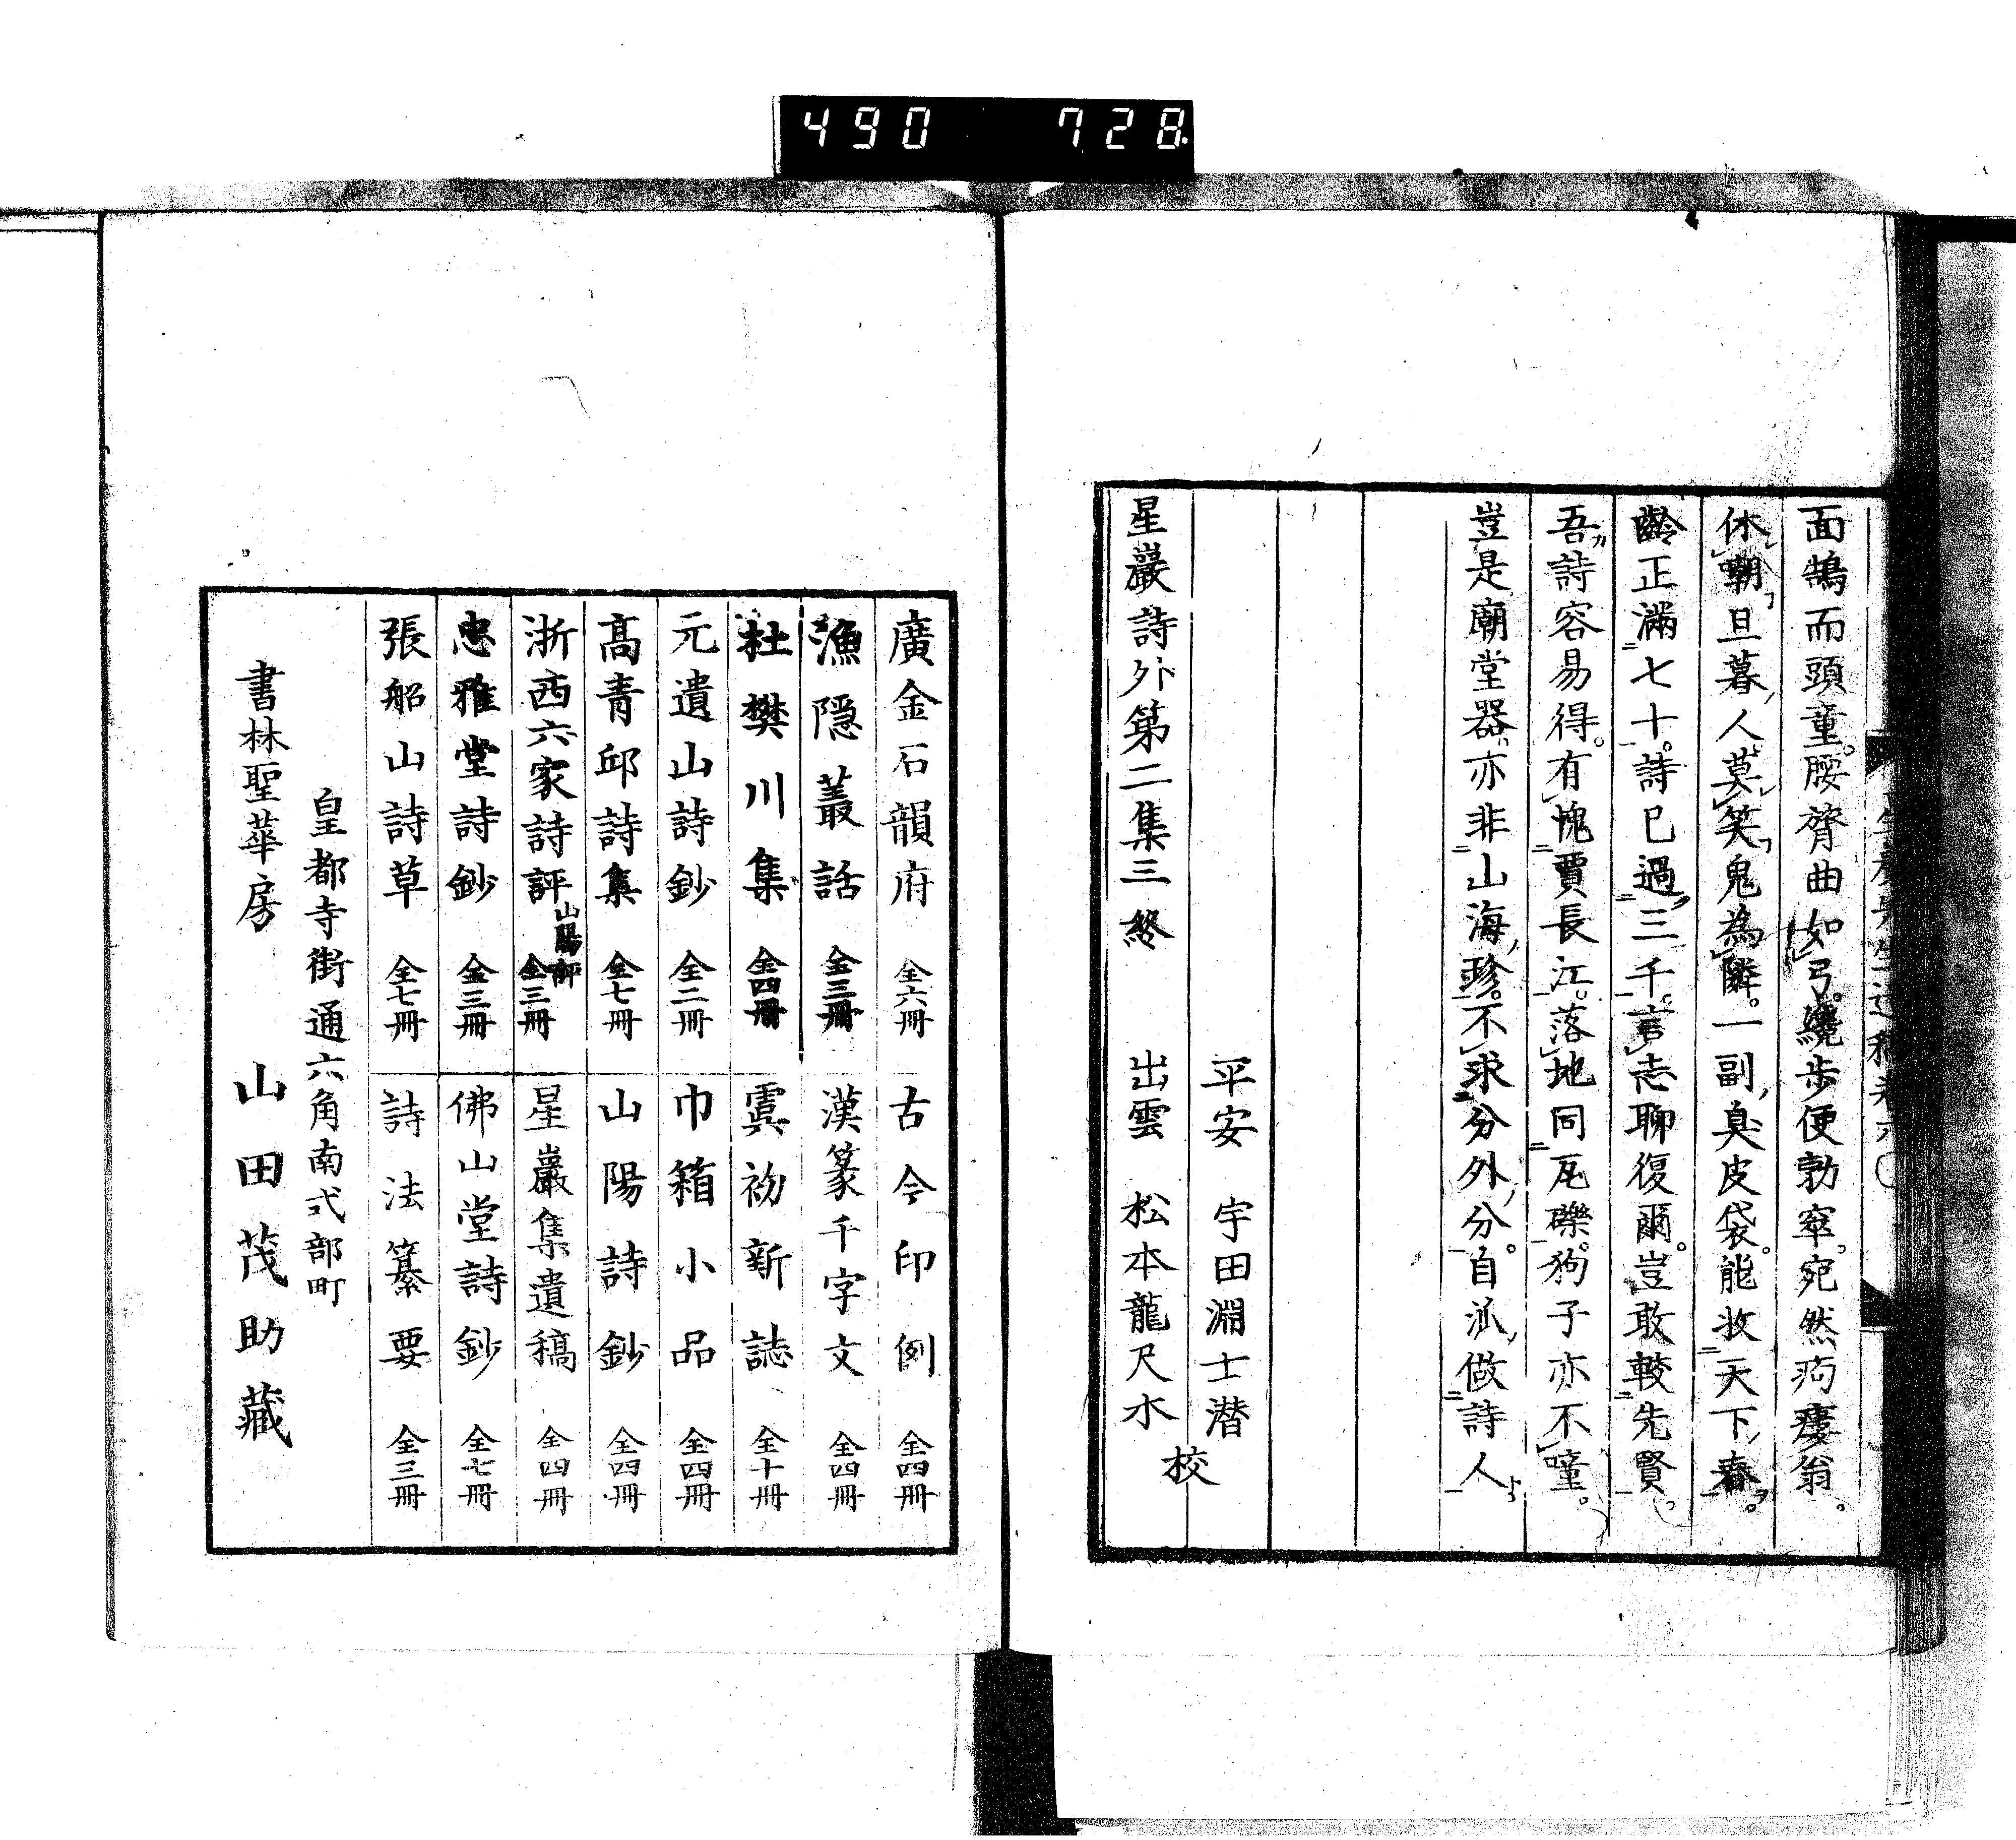 490 728
面鵠而頭童。腰膂曲如弓。纔歩便勃窣。宛然痀瘻翁。
休嘲旦暮人。莫笑鬼為隣。一副臭皮袋。能收天下春。
齡正滿七十。詩已過三千。言志聊復爾。豈敢較先賢。
吾詩容易得。有愧賈長江。落地同瓦礫。狗子亦不嚏。
豈是廟堂器。亦非山海珍。不求分外分。自派做詩人
平安 宇田淵士潜
星巖詩外第二集三終 出雲 松本龍尺水
校
廣金石韻府 全六冊 古今印例 全四冊
漁隱叢話 全三冊 漢篆千字文 全四冊
杜樊川集 全四冊 虞初新誌 全十冊
元遺山詩鈔 全二冊 巾箱小品 全四冊
高青邱詩集 全七冊 山陽詩鈔 全四冊
浙西六家詩評 山陽評 全三冊 星巖集遺稿 全四冊
忠雅堂詩鈔 全三冊 佛山堂詩鈔 全七冊
張船山詩草 全七冊 詩法纂要 全三冊
皇都寺街通六角南弍部町
書林聖華房 山田茂助藏